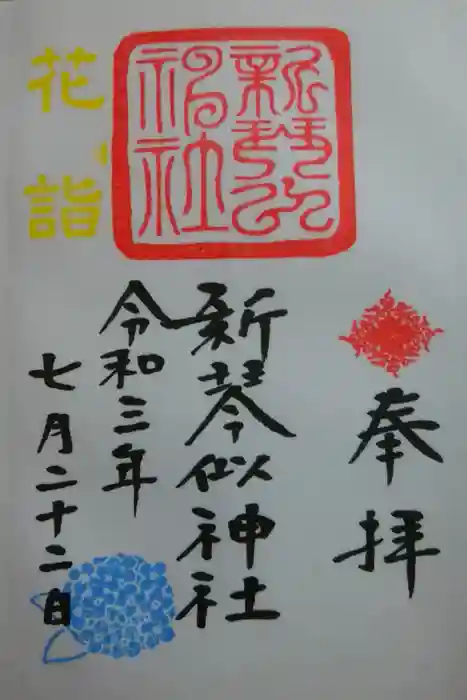 奉拝
新琴似神社
新琴似神社
令和三年
七月二十二日
花詣